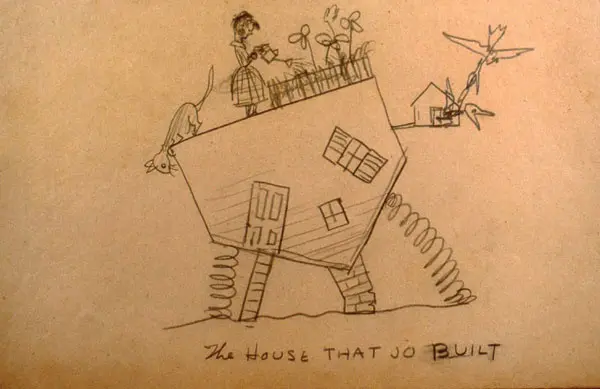 The HOUSE THAT JO BUILT